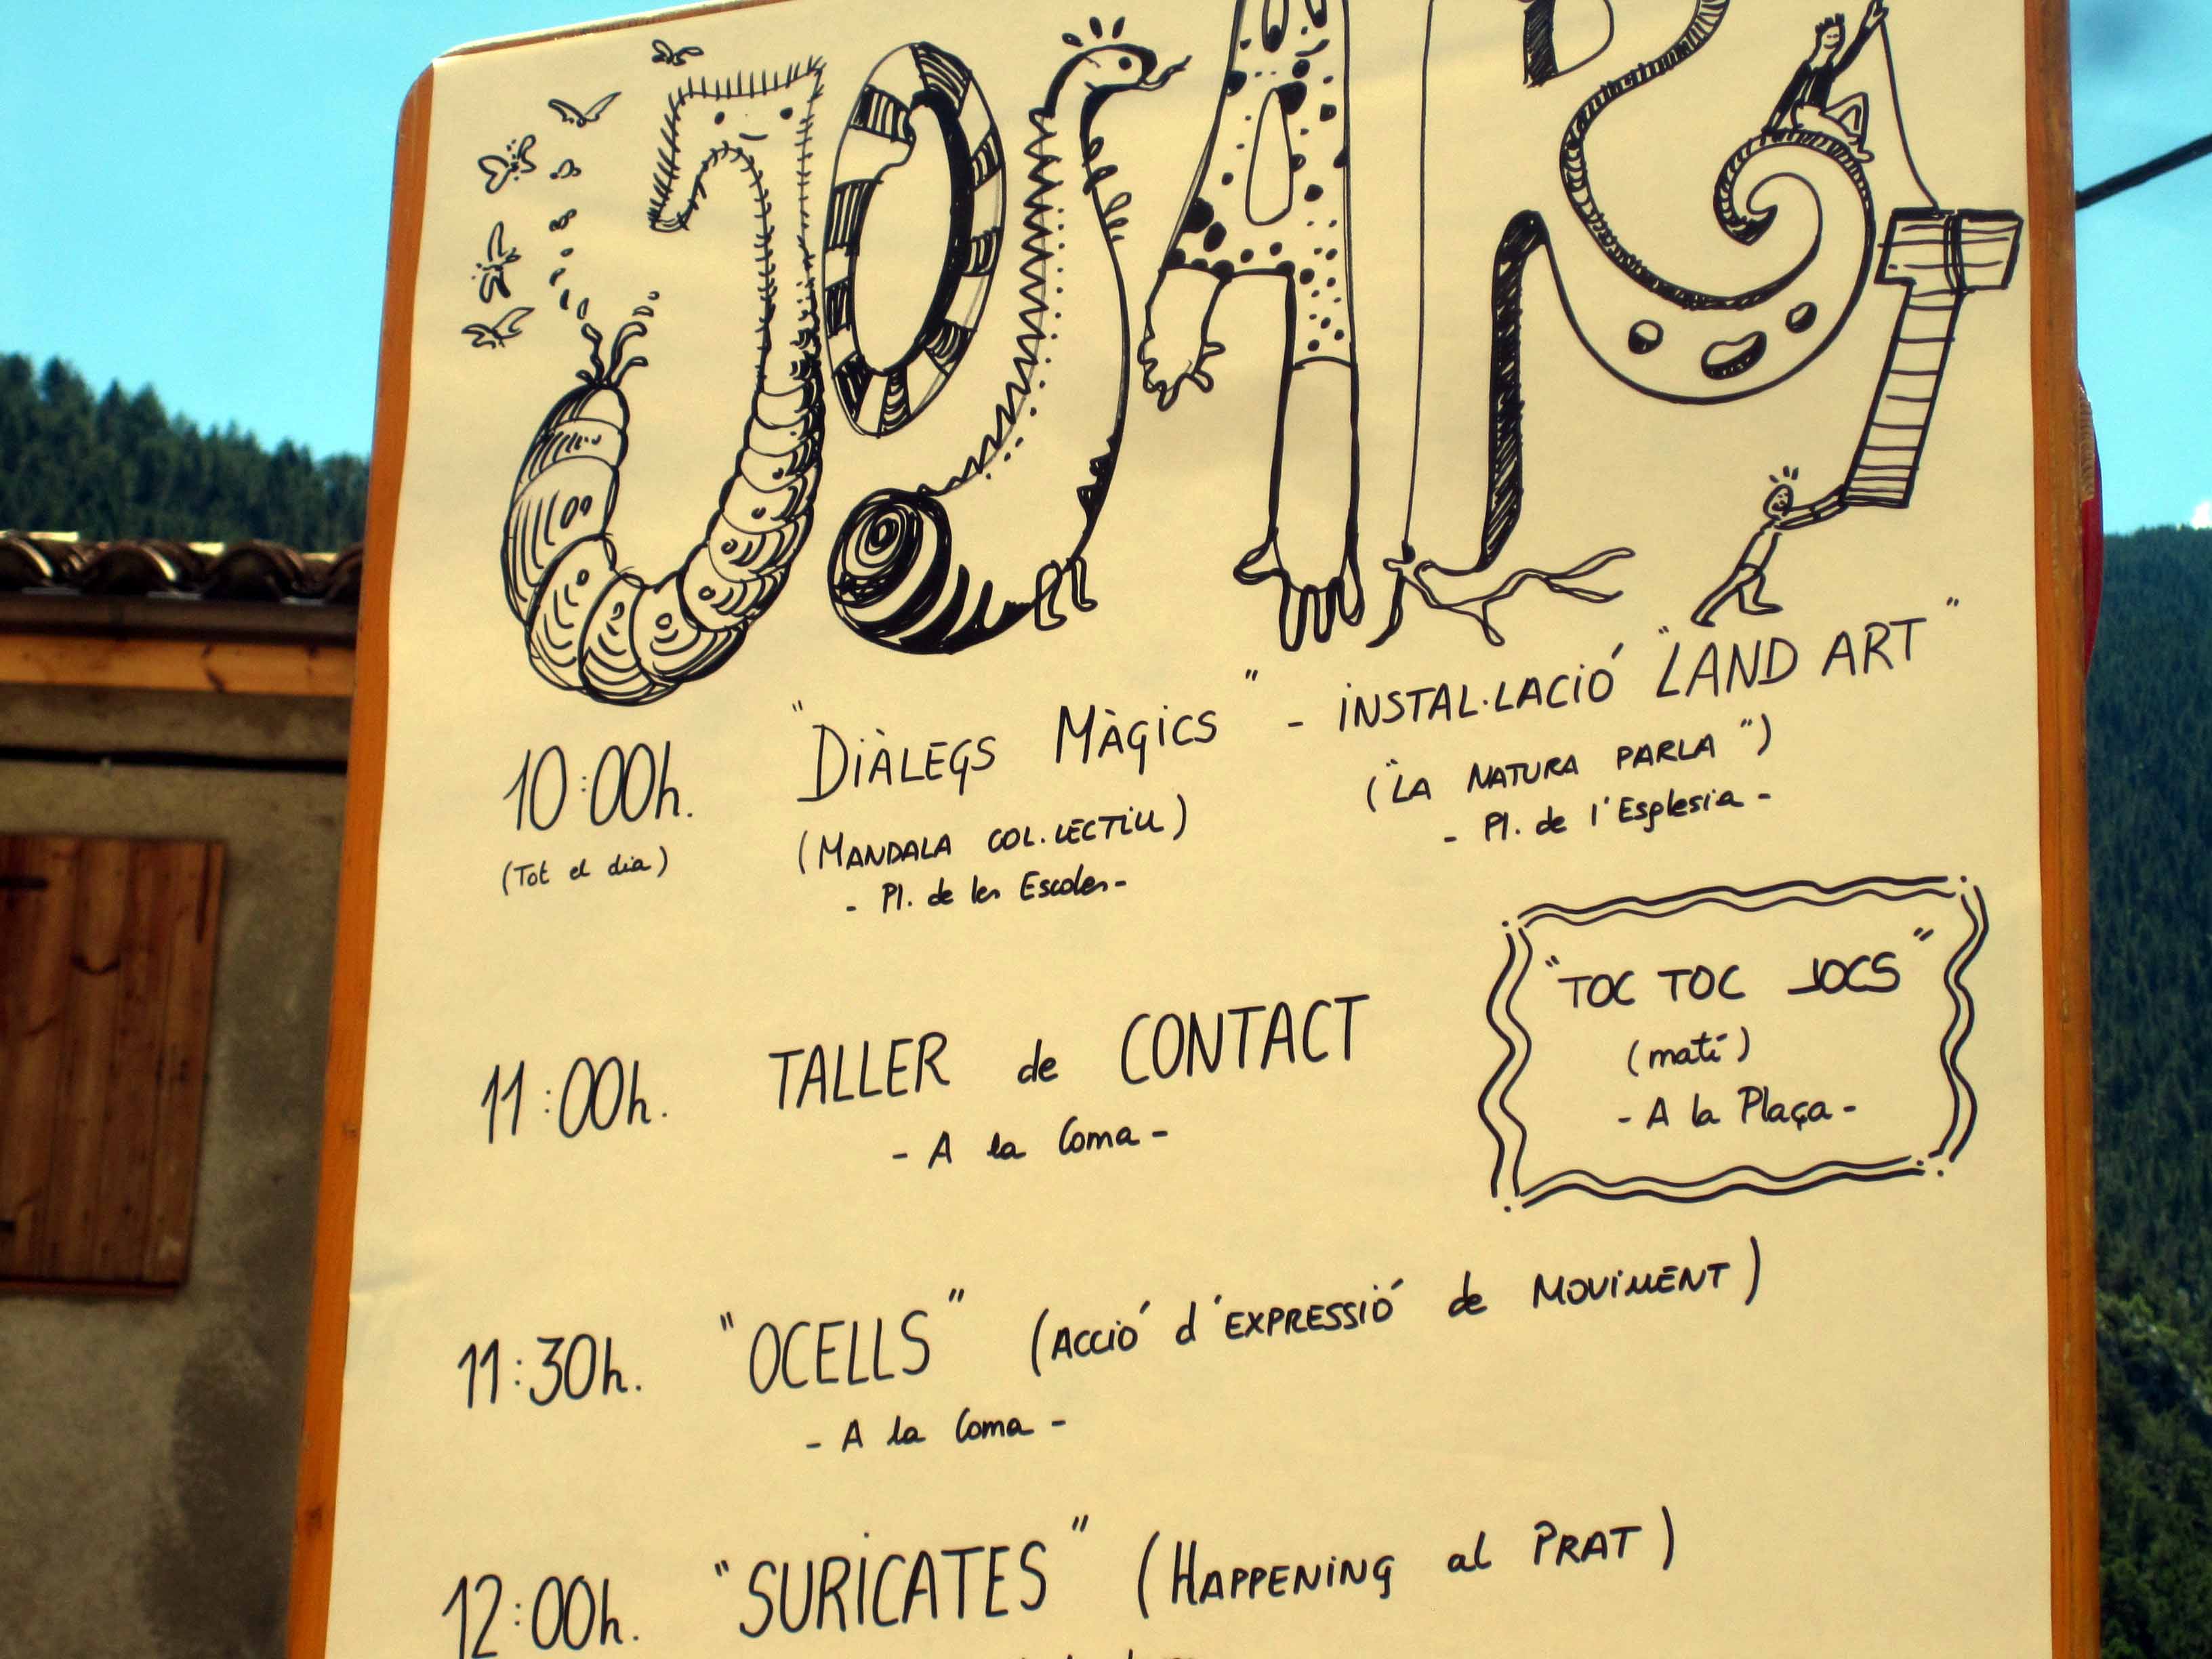 JOSART
10:00h. "DIÀLEGS MÀGICS" - INSTAL·LACIÓ "LAND ART"
(Tot el dia) (MANDALA COL·LECTIU) ("LA NATURA PARLA")
- Pl. de les Escoles - - Pl. de l'Esglesia -
"TOC TOC JOCS"
(matí)
- A la Plaça -
11:00h. TALLER de CONTACT
- A la Coma -
11:30h. "OCELLS" (ACCIÓ d'EXPRESSIÓ de MOVIMENT)
- A la Coma -
12:00h. "SURICATES" (HAPPENING al PRAT)